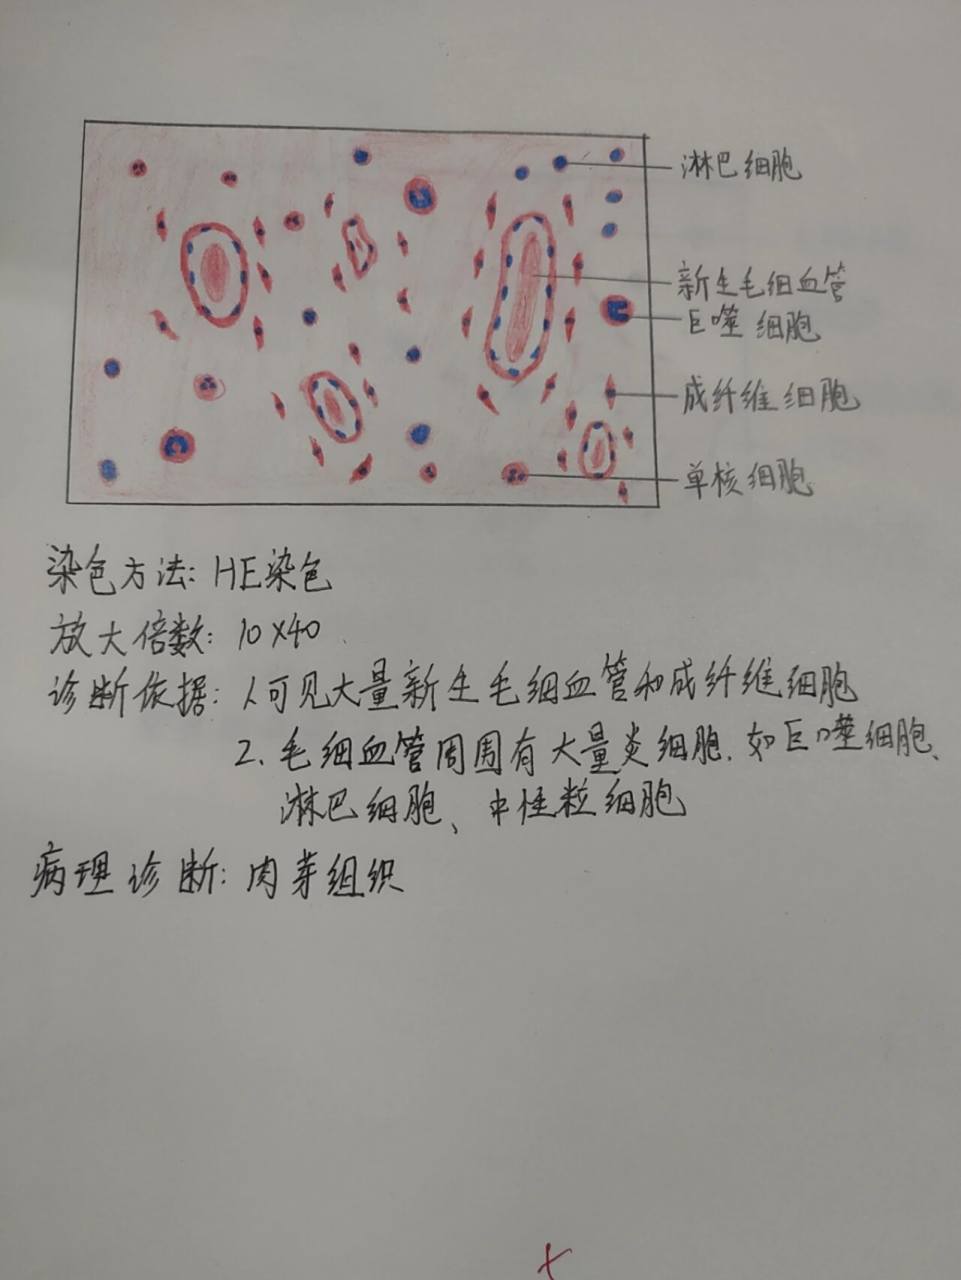 淋巴细胞
新生毛细血管
巨噬细胞
成纤维细胞
单核细胞
染色方法: HE染色
放大倍数: 10×40
诊断依据: 1.可见大量新生毛细血管和成纤维细胞
2、毛细血管周围有大量炎细胞，如巨噬细胞、
淋巴细胞、中性粒细胞
病理诊断: 肉芽组织